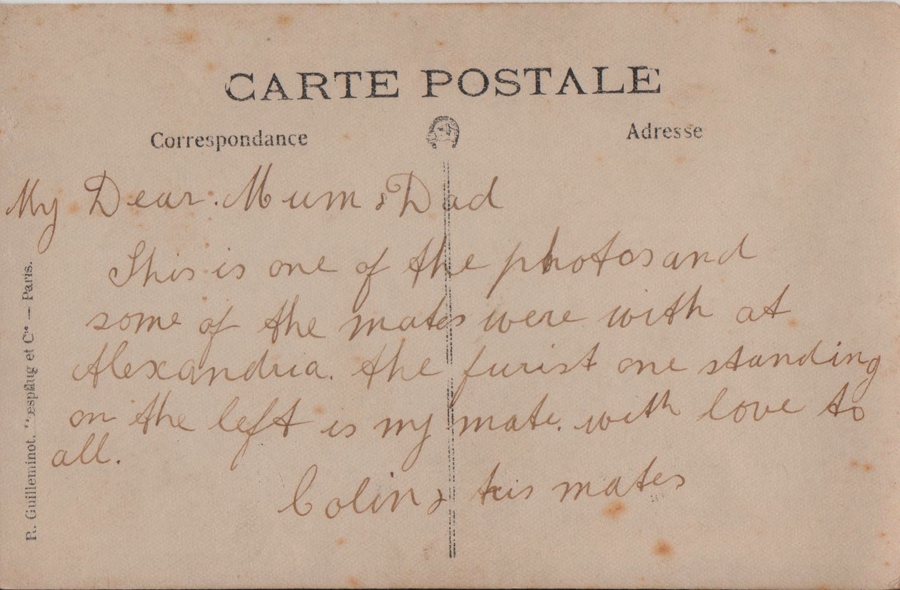 CARTE POSTALE
Correspondance
Adresse
My Dear Mum & Dad
This is one of the photos and
some of the mates were with at
Alexandria. the furist one standing
on the left is my mate. with love to
all.
Colin & his mates
R. Guilleminot, et Cie — Paris.